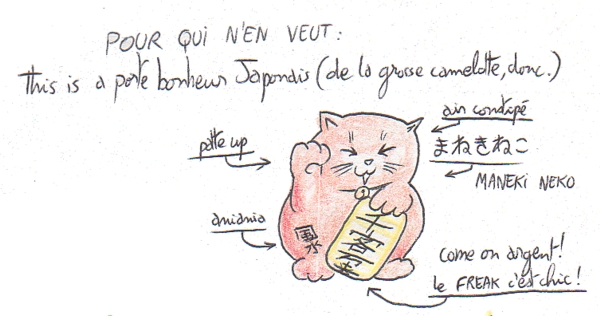 POUR QUI N'EN VEUT :
This is a porte bonheur Japonais (de la grosse camelotte, donc.)
air constipé
まねきねこ
MANEKI NEKO
patte up
aniania
風水
千客金
come on argent!
le FREAK c'est chic!